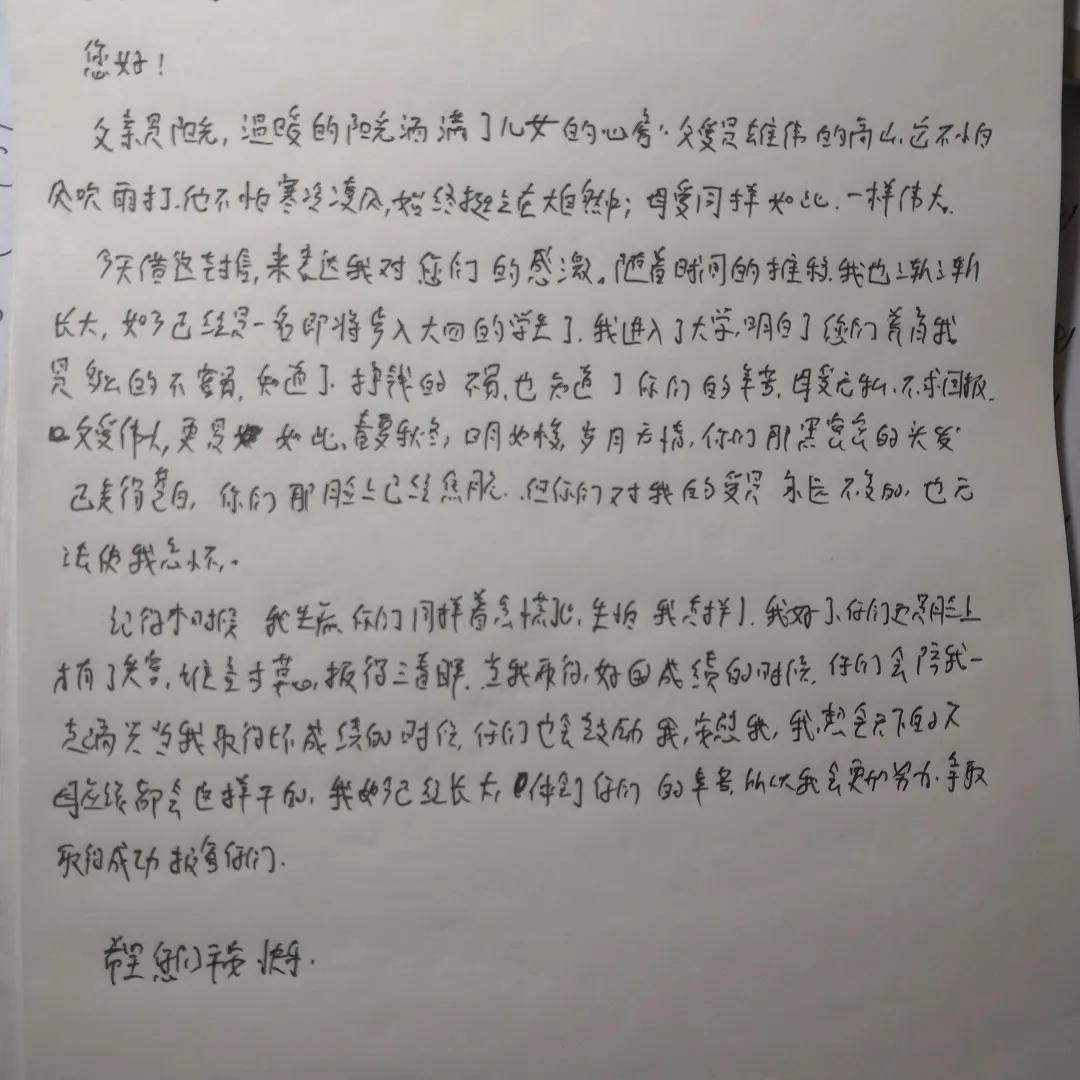 您好!
父亲是阳光,温暖的阳光洒满了儿女的心房.父爱是雄伟的高山,它不怕
风吹雨打.他不怕寒冷凌风,始终挺立在大自然中;母爱同样如此.一样伟大.
今天借这封信,来表达我对您们的感激。随着时间的推移.我也渐渐
长大,如今已经是一名即将步入大四的学生了.我进入了大学,明白了您们养育我
是多么的不容易,知道了.挣钱的不易,也知道了你们的辛苦,母爱无私.不求回报.
父爱伟大,更是如此、春夏秋冬,日月如梭,岁月无情,你们那黑密密的头发
已变得花白,你们那脸上已经焦脆.但你们对我的爱是永远不变的,也无
法使我忘怀..
记得小时候 我生病你们同样着急慌忙,生怕我怎样了.我好了,你们也是脸上
才有了笑容,.当我取得,好的成绩的时候.你们会陪我一
起高兴当我取得坏成绩的时候,你们也会鼓励我,安慰我,我想全天下的父
母应该都会这样干的,我如今已经长大,体会了你们的辛苦,所以我会更加努力.争取
取得成功报答你们.
希望您们平安快乐.